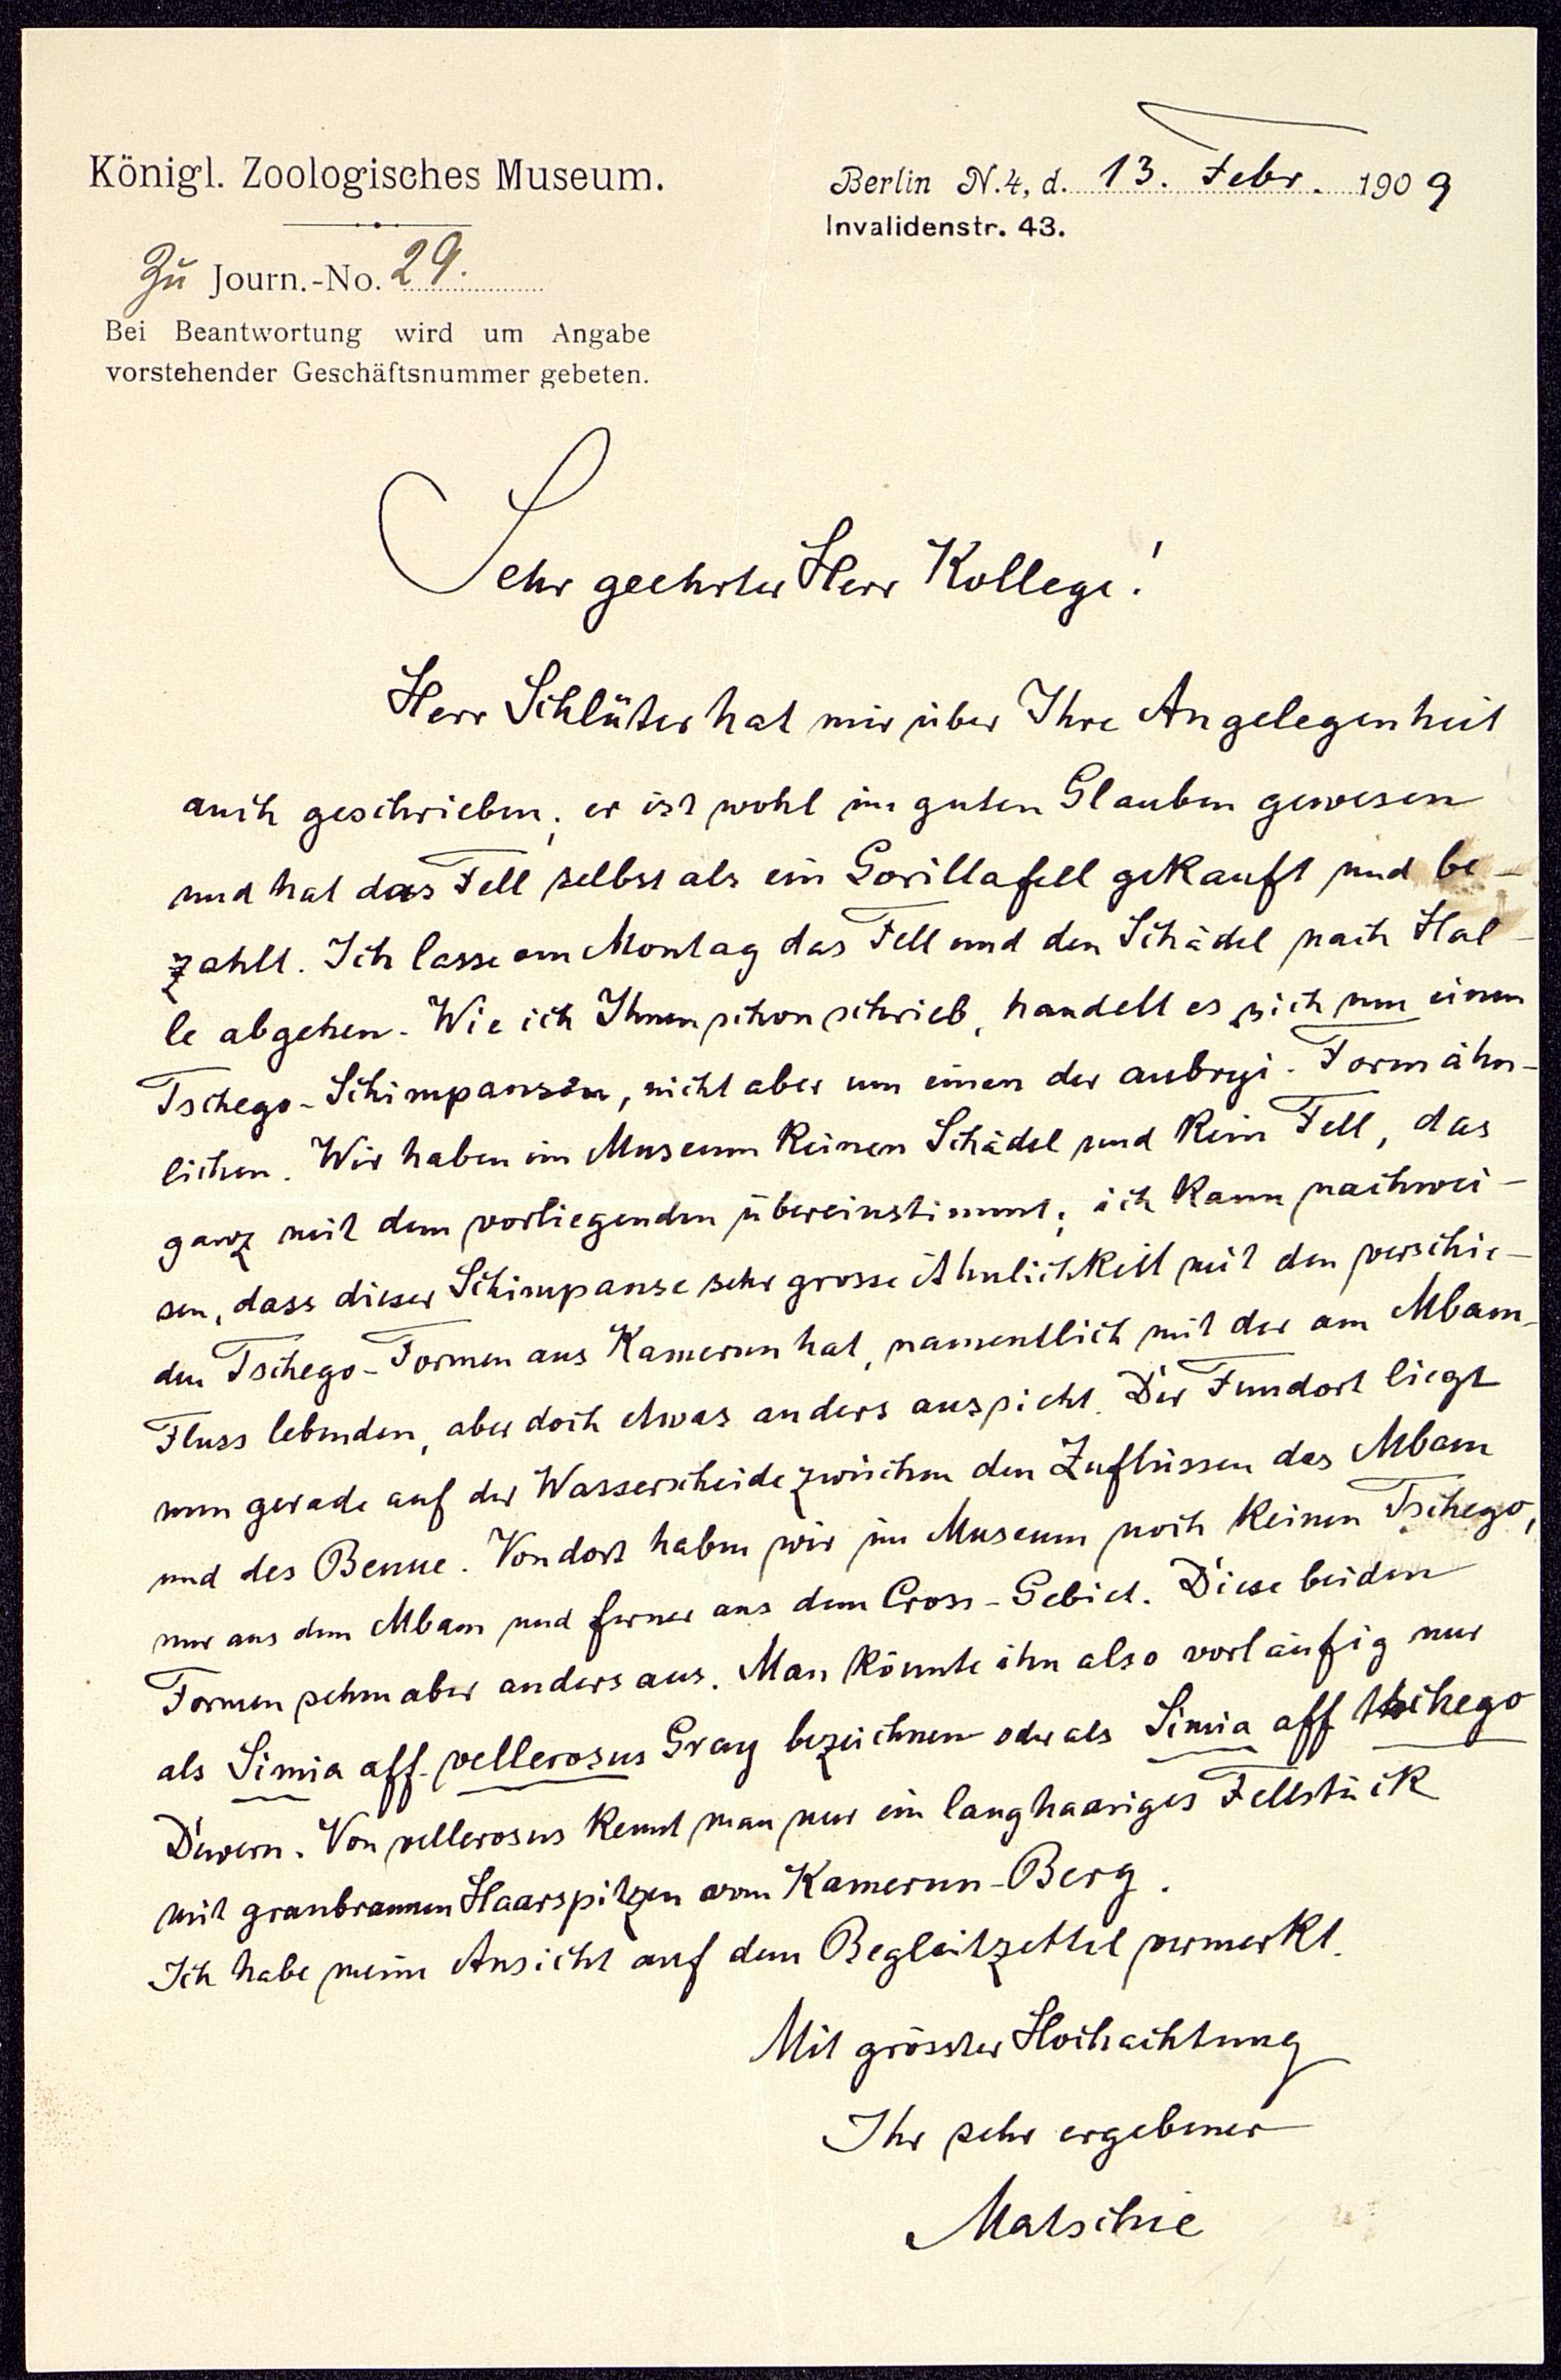 Königl. Zoologisches Museum.
Zu Journ.-No. 29.
Bei Beantwortung wird um Angabe
vorstehender Geschäftsnummer gebeten.
Berlin N.4, d. 13. Febr. 1909
Invalidenstr. 43.
Sehr geehrter Herr Kollege!
Herr Schlüter hat mir über Ihre Angelegenheit
auch geschrieben; er ist wohl im guten Glauben gewesen
und hat das Fell selbst als ein Gorillafell gekauft und be-
zahlt. Ich lasse am Montag das Fell und den Schädel nach Hal-
le abgehen. Wie ich Ihnen schon schrieb, handelt es sich um einen
Tschego-Schimpansen, nicht aber um einen der aubryi-Form ähn-
lichen. Wir haben im Museum keinen Schädel und kein Fell, das
ganz mit dem vorliegenden übereinstimmt; ich kann nachwei-
sen, dass dieser Schimpanse sehr grosse Ähnlichkeit mit den verschie-
den Tschego-Formen aus Kamerun hat, namentlich mit der am Mbam-
Fluss lebenden, aber doch etwas anders aussieht. Der Fundort liegt
nun gerade auf der Wasserscheide zwischen den Zuflüssen des Mbam
und des Benue. Von dort haben wir im Museum noch keinen Tschego,
nur aus dem Mbam und ferner aus dem Cross-Gebiet. Diese beiden
Formen sehen aber anders aus. Man könnte ihn also vorläufig nur
als Simia aff. vellerosus Gray bezeichnen oder als Simia aff tschego
Duvern. Von vellerosus kennt man nur ein langhaariges Fellstück
mit graubraunen Haarspitzen vom Kamerun-Berg.
Ich habe meine Ansicht auf dem Begleitzettel vermerkt.
Mit grösster Hochachtung
Ihr sehr ergebener
Matschie